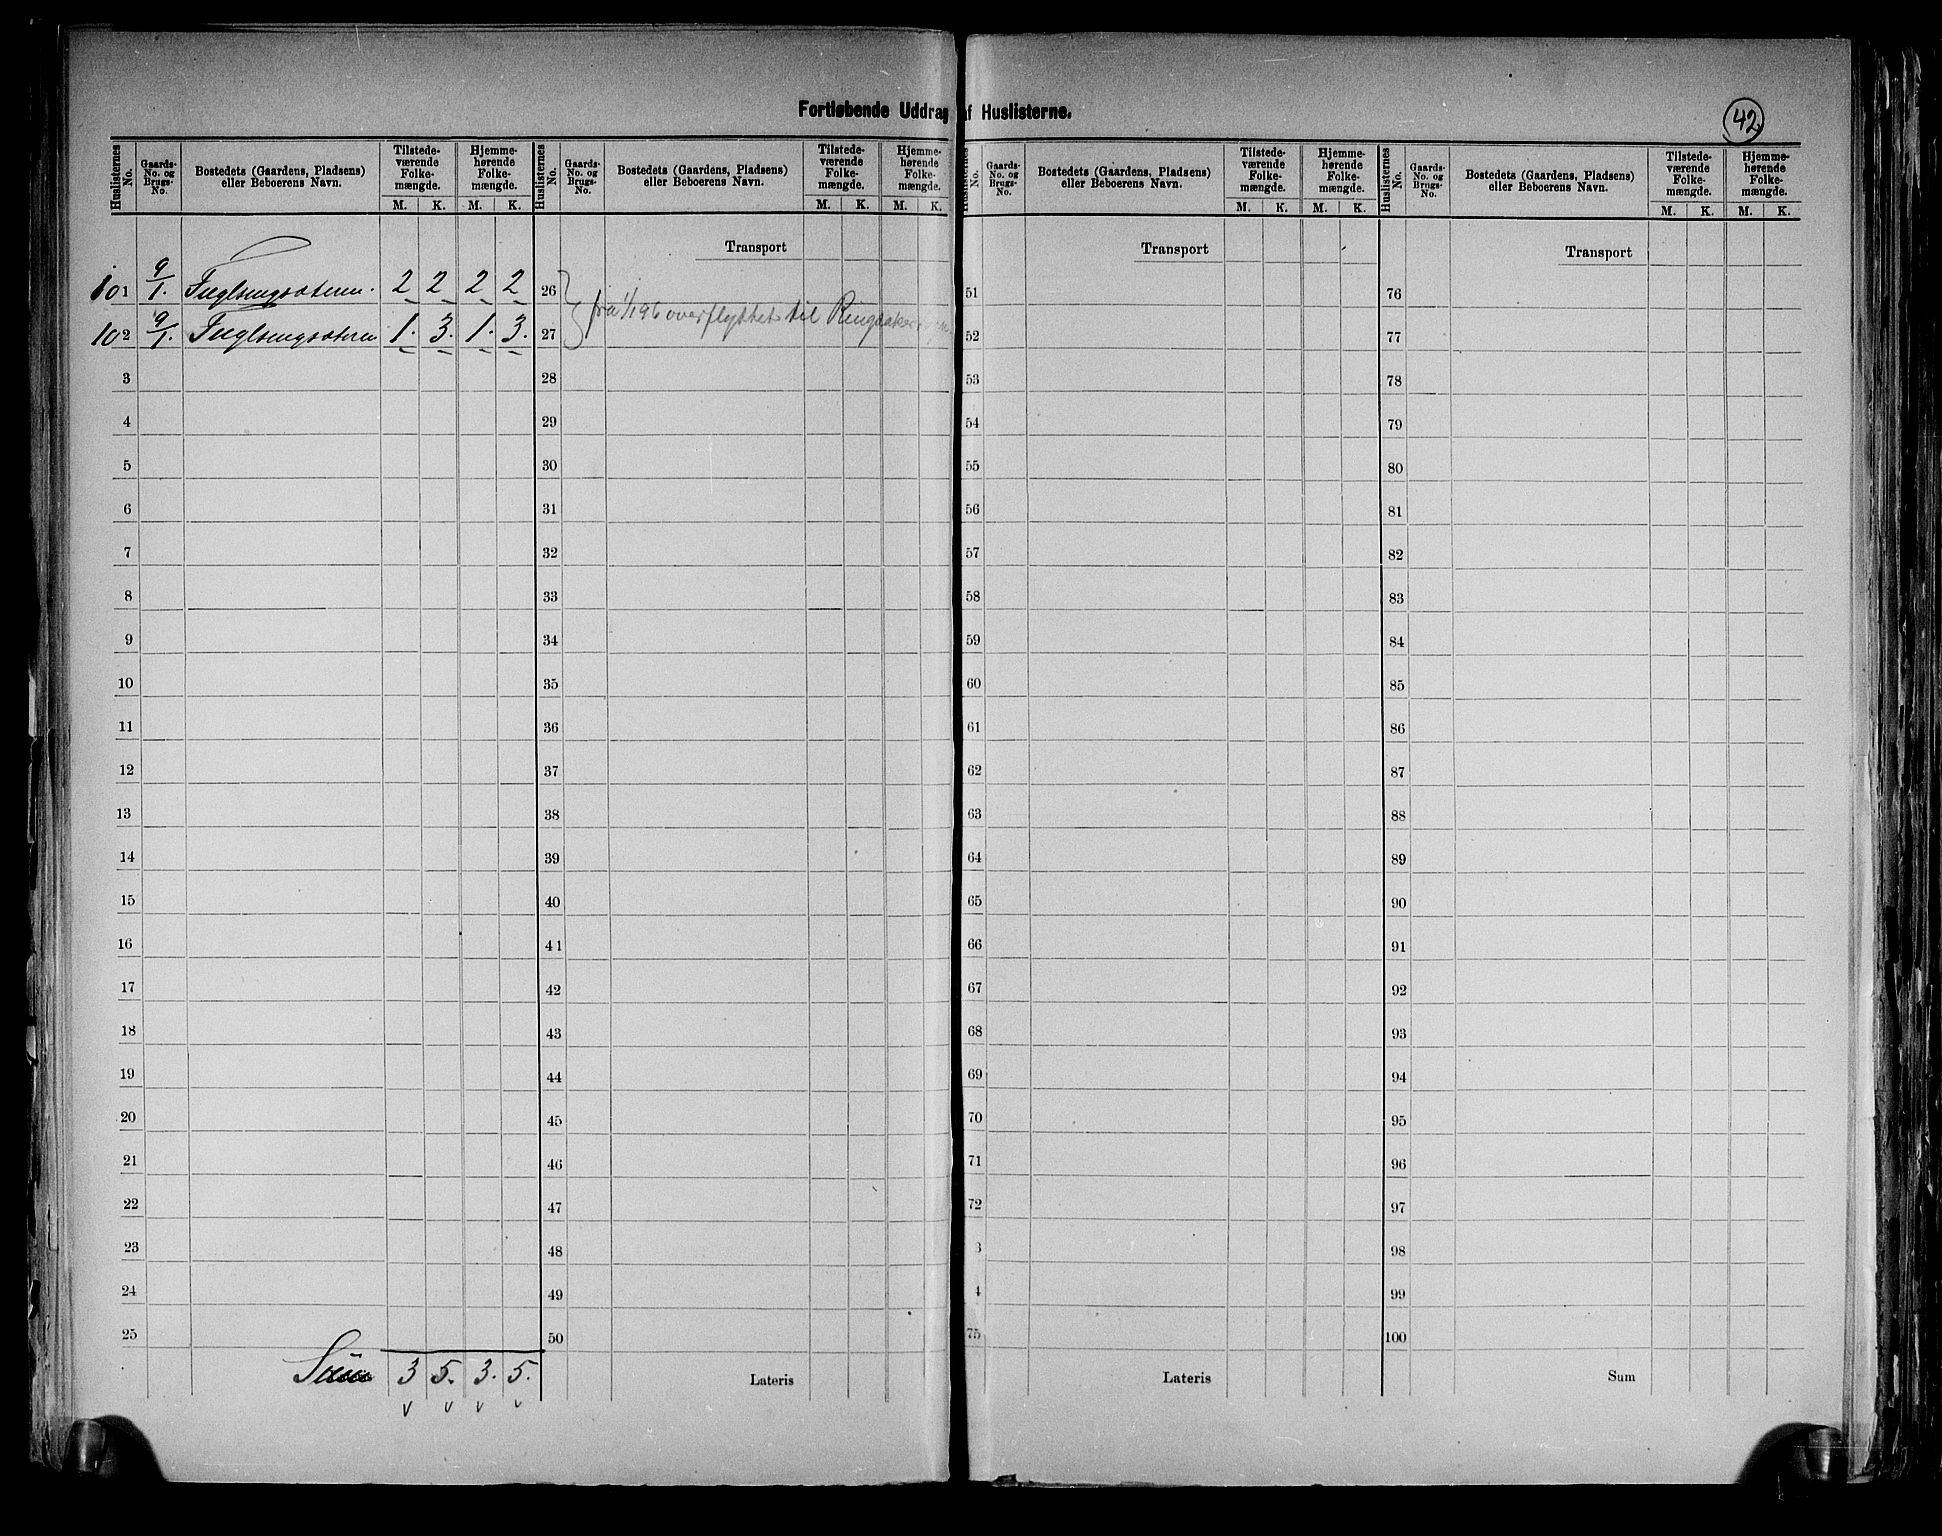 Fortløbende Uddrag af Huslisterne.
42.
Huslisternes No. Gaards-No. og Brugs-No. Bostedets (Gaardens, Pladsens) eller Beboerens Navn. Tilstedeværende Folkemængde. M. K. Hjemmehørende Folkemængde. M. K.
Huslisternes No. Gaards-No. og Brugs-No. Bostedets (Gaardens, Pladsens) eller Beboerens Navn. Tilstedeværende Folkemængde. M. K. Hjemmehørende Folkemængde. M. K.
Huslisternes No. Gaards-No. og Brugs-No. Bostedets (Gaardens, Pladsens) eller Beboerens Navn. Tilstedeværende Folkemængde. M. K. Hjemmehørende Folkemængde. M. K.
Huslisternes No. Gaards-No. og Brugs-No. Bostedets (Gaardens, Pladsens) eller Beboerens Navn. Tilstedeværende Folkemængde. M. K. Hjemmehørende Folkemængde. M. K.
Transport Transport Transport
101 9/1. Fuglsengsæteren. 2 2 2 2 26 51 76
fra 1/1 96 overflyttet til
102 9/1. Fuglsengsæteren 1. 3. 1. 3. 27 52 77
3 28 53 78
4 29 54 79
5 30 55 80
6 31 56 81
7 32 57 82
8 33 58 83
9 34 59 84
10 35 60 85
11 36 61 86
12 37 62 87
13 38 63 88
14 39 64 89
15 40 65 90
16 41 66 91
17 42 67 92
18 43 68 93
19 44 69 94
20 45 70 95
21 46 71 96
22 47 72 97
23 48 3 98
24 49 4 99
25 50 75 100
Sum 3 5. 3. 5. Lateris Lateris Sum